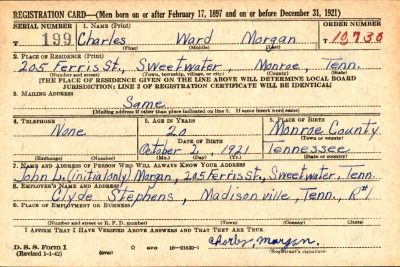 REGISTRATION CARD—(Men born on or after February 17, 1897 and on or before December 31, 1921)
SERIAL NUMBER 1. NAME (Print) ORDER NUMBER
T 199 Charles Ward Morgan 10,730
(First) (Middle) (Last)
2. PLACE OF RESIDENCE (Print)
205 Ferris St., Sweetwater, Monroe, Tenn.
(Number and street) (Town, township, village, or city) (County) (State)
[THE PLACE OF RESIDENCE GIVEN ON THE LINE ABOVE WILL DETERMINE LOCAL BOARD
JURISDICTION; LINE 2 OF REGISTRATION CERTIFICATE WILL BE IDENTICAL]
3. MAILING ADDRESS
Same
[Mailing address if other than place indicated on line 2. If same insert word same]
4. TELEPHONE 5. AGE IN YEARS 6. PLACE OF BIRTH
None 20 Monroe County
DATE OF BIRTH (Town or county)
October 2, 1921 Tennessee
(Exchange) (Number) (Mo.) (Day) (Yr.) (State or country)
7. NAME AND ADDRESS OF PERSON WHO WILL ALWAYS KNOW YOUR ADDRESS
John L. (initial only) Morgan, 205 Ferris St., Sweetwater, Tenn.
8. EMPLOYER'S NAME AND ADDRESS
Clyde Stephens, Madisonville, Tenn., R#1
9. PLACE OF EMPLOYMENT OR BUSINESS
(Number and street or R. F. D. number) (Town) (County) (State)
I AFFIRM THAT I HAVE VERIFIED ABOVE ANSWERS AND THAT THEY ARE TRUE.
D. S. S. Form 1 GPO 16-21630-1 Charles, Morgan.
(Revised 1-1-42) (over) (Registrant's signature)